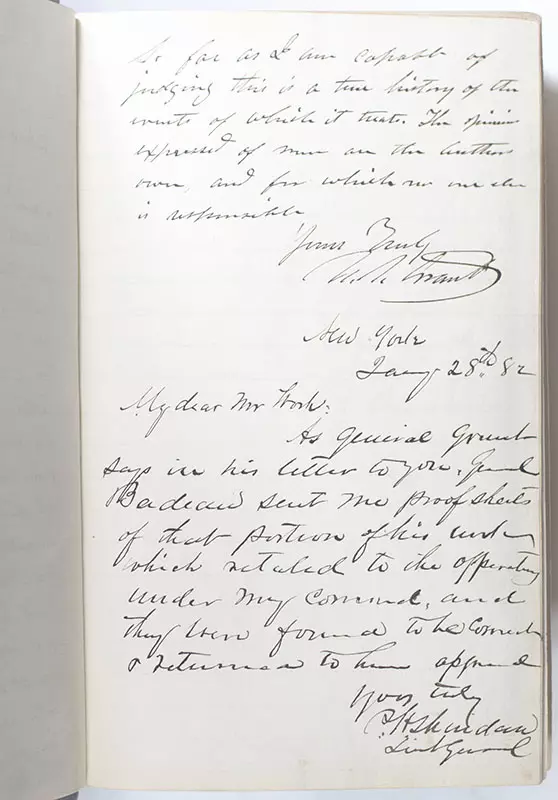 So far as I am capable of
judging this is a true history of the
events of which it treats. The opinions
expressed of men are the authors
own, and for which no one else
is responsible
Yours Truly
U. S. Grant
New York
Jany 28th 82
My dear Mr Work:
As General Grant
says in his letter to you, Genl
Badeau sent me proof sheets
of that portion of his work
which related to the
under my command, and
they were found to be correct
& returned to him
Yours truly
P. H. Sheridan
Lieut General